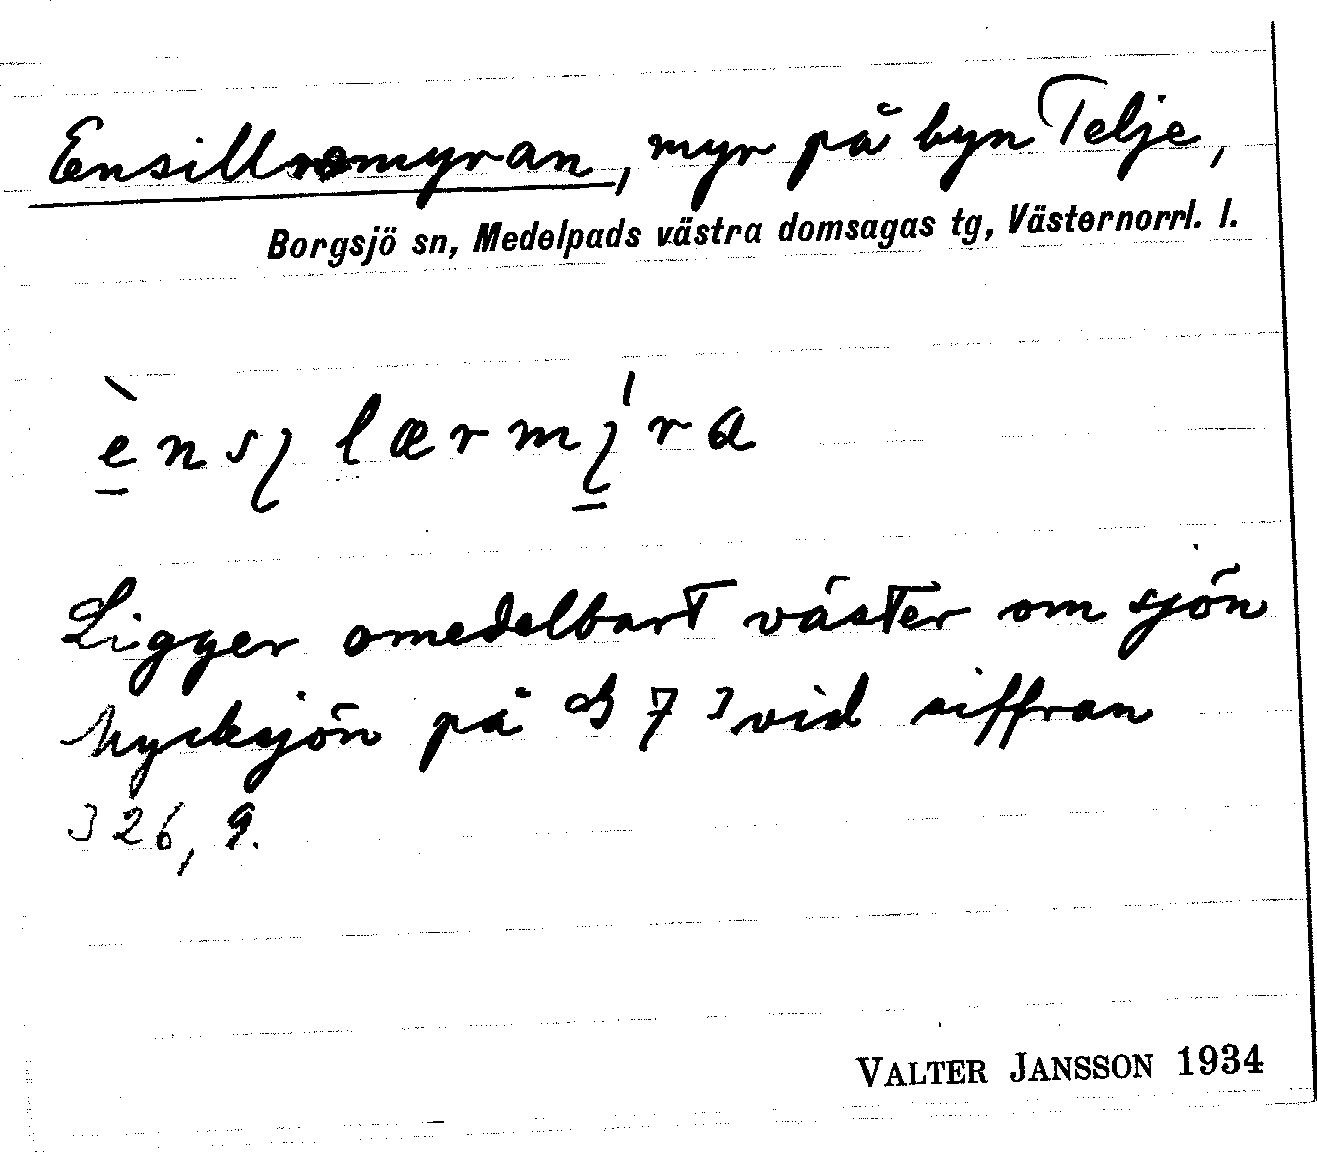 Ensillremyran, myr på byn Telje,
Borgsjö sn, Medelpads västra domsagas tg, Västernorrl. l.
Ligger omedelbart väster om sjön
Nycksjön på B 7 3 vid siffran
326, 9.
VALTER JANSSON 1934